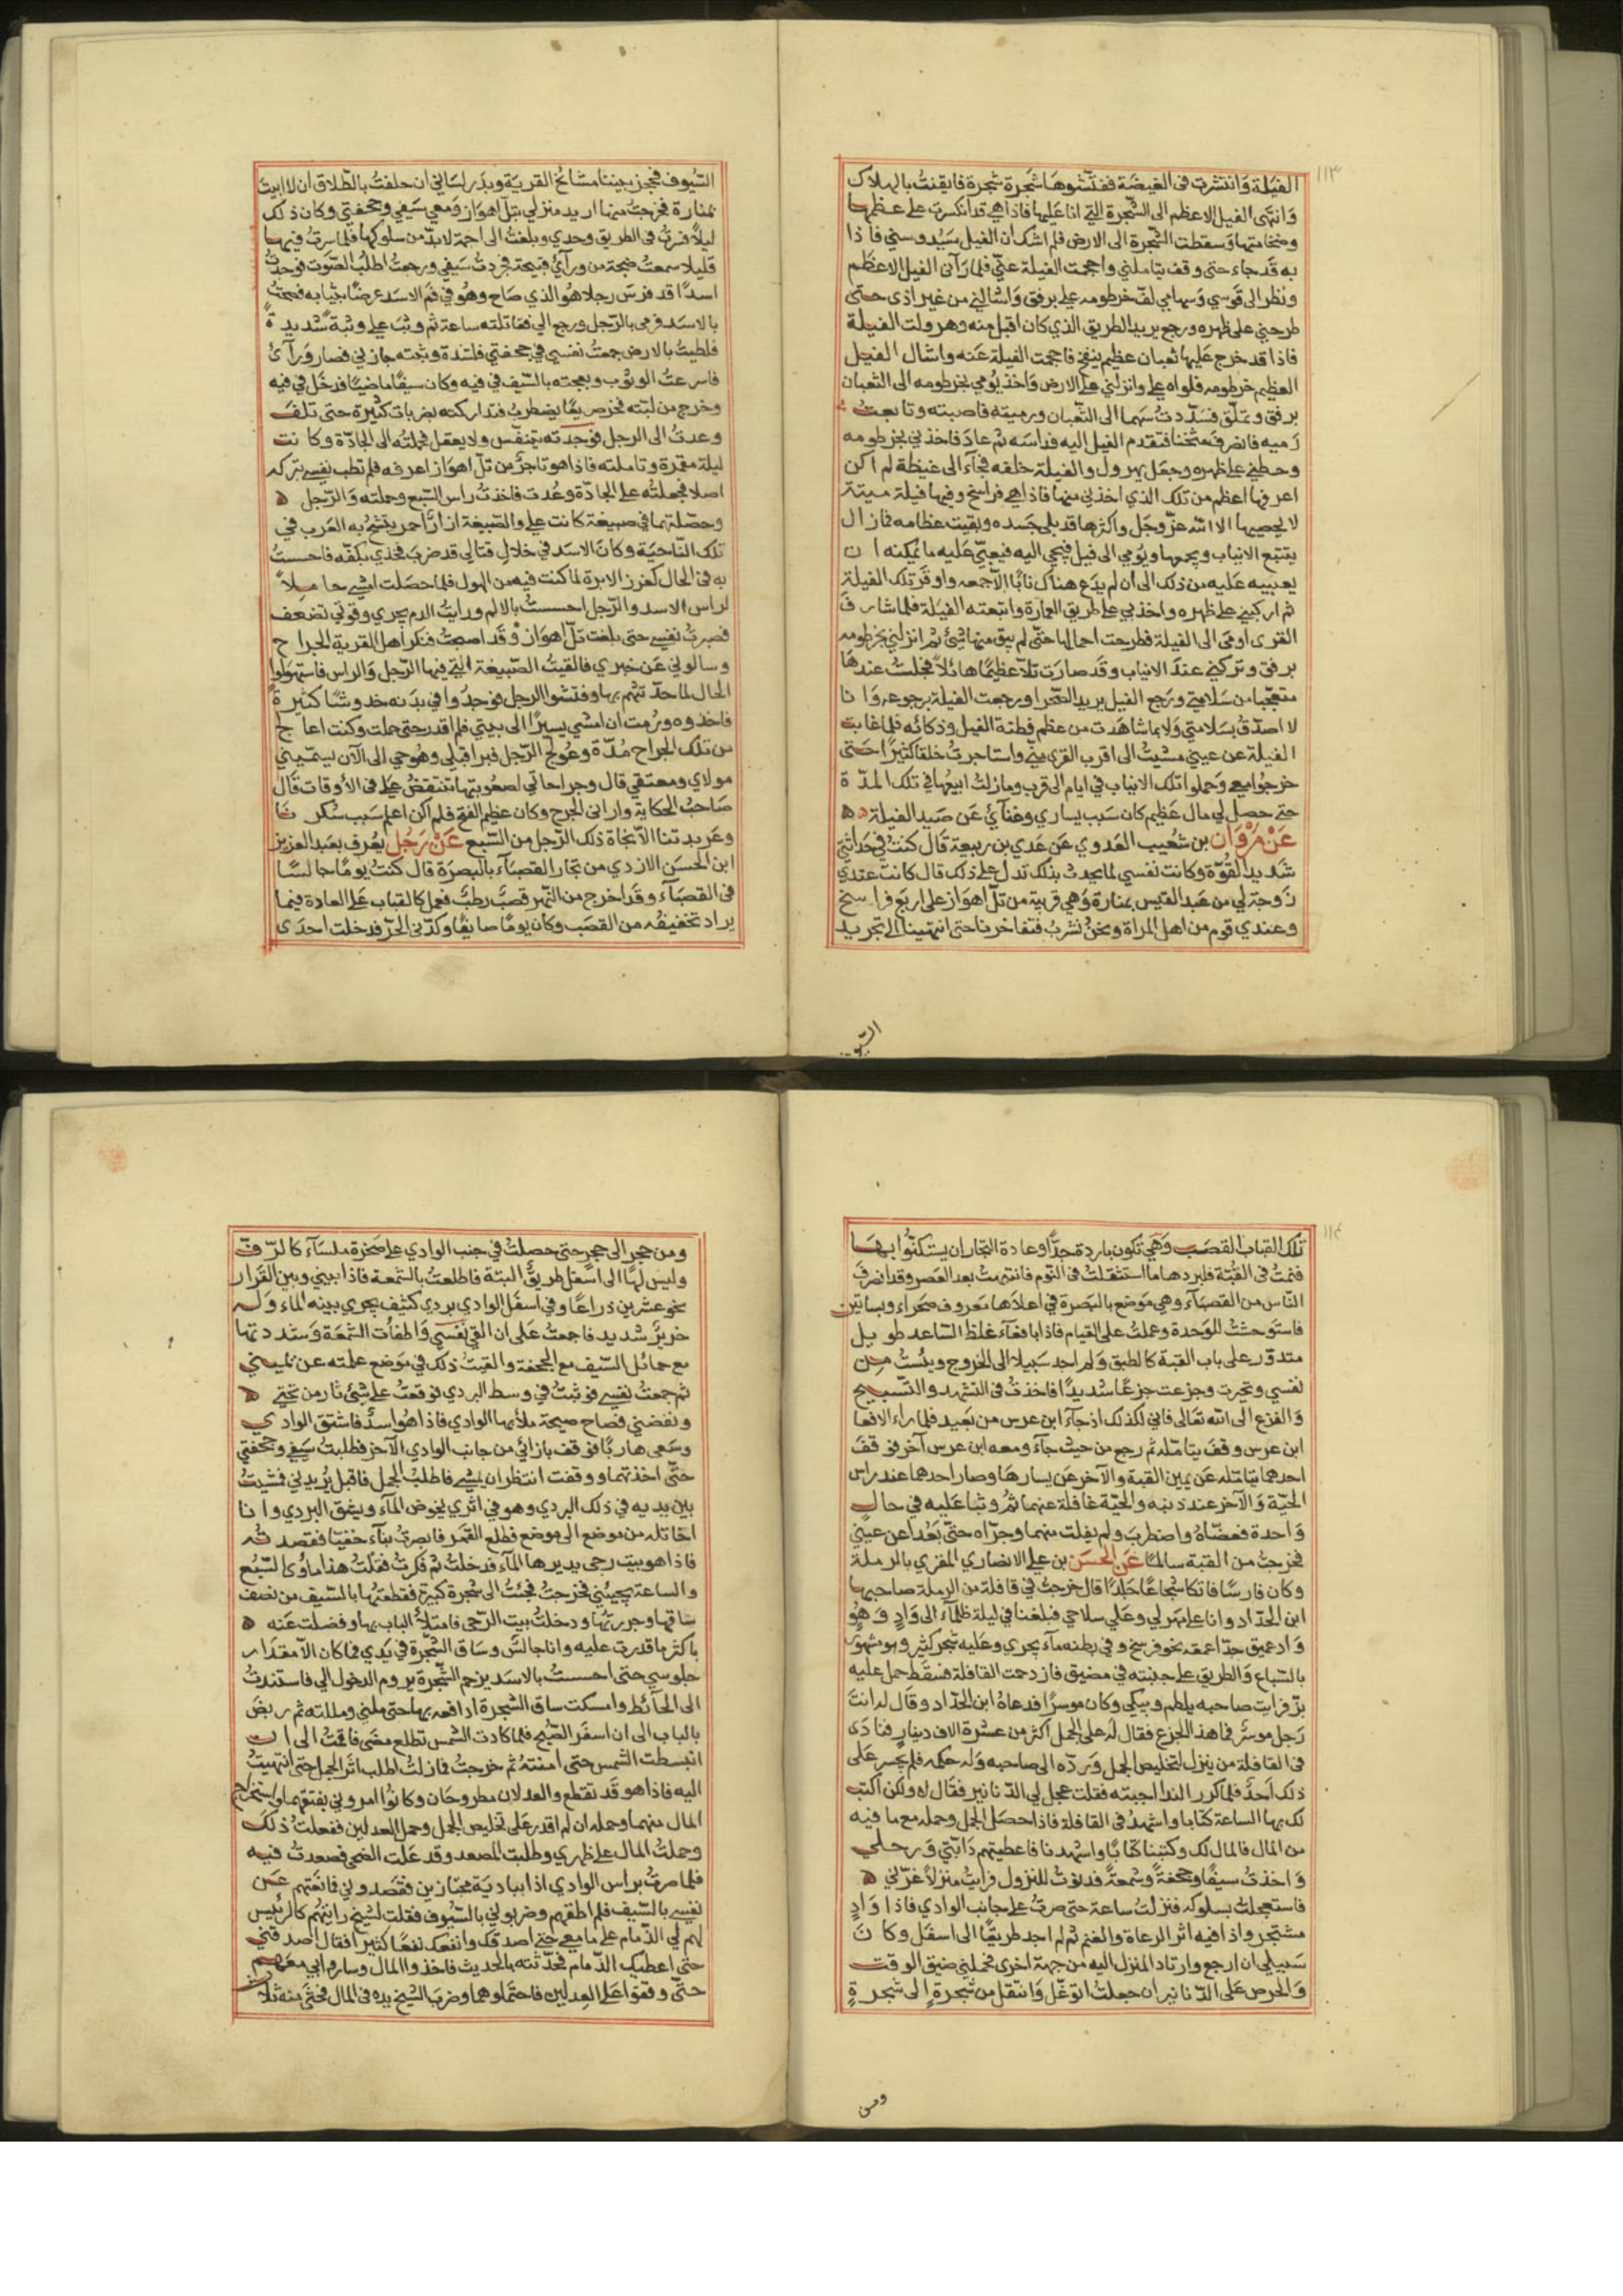 ١١٣
الفيلة وانتشرت فى الغيضة ففتشوها شجرة شجرة فايقنت بالهلاك
وانتهى الفيل الاعظم الى الشجرة التي انا عليها فاذا هي قد انكسرت على عظمها
وضخامتها وسقطت الشجرة الى الارض فلم اشك ان الفيل سيدوسني فاذا
به قد جاء حتى وقف يتاملني واحجمت الفيلة عني فلما رآنى الفيل الاعظم
ونظر الى قوسي وسهامي لف خرطومه علي برفق واشالني من غير اذى حتى
طرحني على ظهره ورجع يريد الطريق الذي كان اقبل منه وهرولت الفيلة
فاذا قد خرج عليها ثعبان عظيم ينفخ فاحجمت الفيلة عنه واشال الفيل
العظيم خرطومه فلواه علي وانزلني على الارض واخذ يومي بخرطومه الى الثعبان
برفق وتملق فسددت سهما الى الثعبان ورميته فاصبته وتابعت
رميه فانصرف مثخنا فتقدم الفيل اليه فداسه ثم عاد فاخذني بخرطومه
وحطني على ظهره وجعل يهرول والفيلة خلفه فجآء الى غيظة لم اكن
اعرفها اعظم من تلك الذي اخذني منها فاذا هي فراسخ وفيها فيلة ميتة
لا يحصيها الا الله عز وجل واكثرها قد بلى جسده وبقيت عظامه فما زال
يتتبع الانياب ويجمعها ويومي الى فيل فيجي اليه فيعبي عليه ما يمكنه ان
يعبيه عليه من ذلك الى ان لم يدع هناك نابا الا جمعه واوقر تلك الفيلة
ثم اركبني على ظهره واخذ بي على طريق العمارة واتبعته الفيلة فلما شارف
القرى اومى الى الفيلة فطرحت احمالها حتى لم يبق منها شيئ ثم انزلني بخرطومه
برفق وتركني عند الانياب وقد صارت تلا عظيما هائلا فجلست عندها
متعجبا من سلامتي ورجع الفيل يريد الصحرا ورجعت الفيلة برجوعه وانا
لا اصدق بسلامتي ولا بما شاهدت من عظم فطنة الفيل وذكائه فلما غابت
الفيلة عن عيني مشيت الى اقرب القرى مني واستاجرت خلقا كثيرا حتى
خرجوا معي وحملوا تلك الانياب في ايام الى قرب وما زلت ابيعها في تلك المدة
حتى حصل لي مال عظيم كان سبب يساري وغنآئ عن صيد الفيلة ه ه
عن مروان بن شعيب العدوي عن عدي بن ربيعة قال كنت في حداثتي
شديد القوة وكانت نفسي لما يحدث بذلك تدل على ذلك قال كانت عندي
زوجة لي من عبد القيس بمنارة وهي قرية من تل اهواز على اربع فراسخ
وعندي قوم من اهل المراة ونحن نشرب فتفاخرنا حتى انتهينا الى تجريد
السيوف
السيوف فحجز بيننا مشائخ القرية وبدر لساني ان حلفت بالطلاق ان لا ابيت
بمنارة فخرجت منها اريد منزلي بتل اهواز ومعي سيفي وجحفتي وكان ذلك
ليلا فسرت فى الطريق وحدي وبلغت الى اجمة لا بد من سلوكها فلما سرت فيها
قليلا سمعت ضجة من ورآئ قبيحة فجردت سيفي ورجعت اطلب الصوت فوجدت
اسدا قد فرس رجلا هو الذي صاح وهو في فم الاسد عرضا بثيابه فصحت
بالاسد فرمى بالرجل ورجع الي فقاتلته ساعة ثم وثب علي وثبة شديدة
فلطيت بالارض وجمعت نفسي في جحفتي فلشدة وثبته جازني فصار ورآئ
فاسرعت الوثوب وبعجته بالسيف في فيه وكان سيفا ماضيا فدخل في فيه
وخرج من لبته فخر صريعا يضطرب فتداركته بضربات كثيرة حتى تلف
وعدت الى الرجل فوجدته يتنفس ولا يعقل فحملته الى الجادة وكانت
ليلة مقمرة وتاملته فاذا هو تاجر من تل اهواز اعرفه فلم تطب نفسي بتركه
اصلا فجعلته على الجادة وعدت فاخذت راس السبع وحملته والرجل ه
وحصلتهما في صبيغة كانت علي والصبيغة ازار احمر يتشح به العرب في
تلك الناحية وكان الاسد في خلال قتالي قد ضرب فخذي بكفه فاحسست
به في الحال كغرز الابرة لما كنت فيه من الهول فلما حصلت امشي حاملا
لراس الاسد والرجل احسست بالالم ورايت الدم يجري وقوتي تضعف
فصبرت نفسي حتى بلغت تل اهواز وقد اصبحت فنكر اهل القرية الجراح
وسالوني عن خبري فالقيت الصبيغة التي فيها الرجل والراس فاستهولوا
الحال لما حدثتهم بها وفتشوا الرجل فوجدوا في بدنه خدوشا كثيرة
فاخذوه ورمت ان امشي يسيرا الى بيتي فلم اقدر حتى حملت وكنت اعالج
من تلك الجراح مدة وعولج الرجل فبرا قبلي وهو حي الى الآن يسميني
مولاي ومعتقي قال وجراحاتي لصعوبتها تنتقض علي فى الاوقات قال
صاحب الحكاية واراني الجرح وكان عظيم الفتح فلم اكن اعلم سبب سكرنا
وعربدتنا الا نجاة ذلك الرجل من السبع عن رجل يعرف بعبد العزيز
ابن الحسن الازدي من تجار القصبآء بالبصرة قال كنت يوما جالسا
فى القصبآء وقد اخرج من النهر قصب رطب فعمل كالقباب على العادة فيما
يراد تخفيفه من القصب وكان يوما صايفا وكدني الحر فدخلت احدى
١١٤
تلك القباب القصب وهي تكون باردة جدا وعادة التجار ان يستكنوا بها
فنمت فى القبة فلبردها ما استثقلت فى النوم فانتبهت بعد العصر وقد انصرف
الناس من القصبآء وهي موضع بالبصرة في اعلاها معروف صحراء وبساتين
فاستوحشت للوحدة وعملت على القيام فاذا بافعآء غلظ الساعد طويل
متدور على باب القبة كالطبق ولم اجد سبيلا الى الخروج ويئست من
نفسي وتحيرت وجزعت جزعا شديدا فاخذت فى التشهد والتسبيح
والفزع الى الله تعالى فاني لكذلك اذ جآء ابن عرس من بعيد فلما راء الافعا
ابن عرس وقف يتامله ثم رجع من حيث جآء ومعه ابن عرس آخر فوقف
احدهما يتامله عن يمين القبة والآخر عن يسارها وصار احدهما عند راس
الحية والآخر عند ذنبه والحية غافلة عنهما ثم وثبا عليه في حال
واحدة فعضاه واضطرب ولم يفلت منهما وجراه حتى بعدا عن عيني
فخرجت من القبة سالما عن الحسن بن علي الانصاري المقري بالرملة
وكان فارسا فاتكا شجاعا جلدا قال خرجت في قافلة من الرملة صاحبها
ابن الحداد وانا على مهر لي وعلي سلاحي فبلغنا في ليلة ظلمآء الى واد وهو
واد عميق جدا عمقه نحو فرسخ وفي بطنه مآء يجري وعليه شجر كثير وهو مشهور
بالسباع والطريق على جنبته في مضيق فازدحمت القافلة فسقط حمل عليه
بز فرايت صاحبه يلطم ويبكي وكان موسرا فدعاه ابن الحداد وقال له انت
رجل موسر فما هذا الجزع فقال له على الجمل اكثر من عشرة الاف دينار فنادى
فى القافلة من ينزل لتخليص الجمل ورده الى صاحبه وله حكمه فلم يجسر على
ذلك احد فلما كرر الندا اجبته فقلت عجل لي الدنانير فقال لا ولكن اكتب
لك بها الساعة كتابا واشهد فى القافلة فاذا حصل الجمل وحمله مع ما فيه
من المال فالمال لك وكتبنا كتابا واشهدنا فاعطيتهم دابتي ورحلي
واخذت سيفا وجحفة وشمعة فدنوت للنزول فرايت منزلا غرني ه
فاستعجلت بسلوكه فنزلت ساعة حتى صرت على جانب الوادي فاذا واد
مشتجر واذا فيه اثر الرعاة والغنم ثم لم اجد طريقا الى اسفل وكان
سبيلي ان ارجع وارتاد المنزل اليه من جهة اخرى فحملني ضيق الوقت
والحرص على الدنانير ان جعلت اتوغل وانتقل من شجرة الى شجرة
ومن
ومن حجر الى حجر حتى حصلت في جنب الوادي على صخرة ملسآء كالرف
وليس لها الى اسفل طريق البتة فاطلعت بالشمعة فاذا بيني وبين القرار
نحو عشرين ذراعا وفي اسفل الوادي بردي كثيف يجري بينه الماء وله
خرير شديد فاجمعت على ان القي نفسي واطفات الشمعة وشددتها
مع حمائل السيف مع الجحفة والقيت ذلك في موضع علمته عن يميني
ثم جمعت نفسي فوثبت في وسط البردي فوقعت على شيئ ثار من تحتي ه
ونفضني فصاح صيحة ملأ بها الوادي فاذا هو اسد فاشتق الوادي
وسعى هاربا فوقف بازائي من جانب الوادي الآخر فطلبت سيفي وجحفتي
حتى اخذتهما ووقفت انتظر ان يمشي فاطلب الجمل فاقبل يريدني فمشيت
بين يديه في ذلك البردي وهو في اثري يخوض المآء ويشق البردي وانا
اخاتله من موضع الى موضع فطلع القمر فابصرت بنآء خفيا فقصدته
فاذا هو بيت رحى يديرها المآء فدخلت ثم فكرت فقلت هذا ماوى السبع
والساعة يجيئني فخرجت فجئت الى شجرة كبيرة فقطعتها بالسيف من نصف
ساقها وجررتها ودخلت بيت الرحى فامتلأ الباب بها وفضلت عنه ه
باكثر ما قدرت عليه وانا جالس وساق الشجرة في يدي فما كان الا مقدار
جلوسي حتى احسست بالاسد يزحم الشجرة يروم الدخول الي فاستندت
الى الحآئط وامسكت ساق الشجرة ادافعه بها حتى ملني ومللته ثم ربض
بالباب الى ان اسفر الصبح فلما كادت الشمس تطلع مضى فاقمت الى ان
انبسطت الشمس حتى امنته ثم خرجت فما زلت اطلب اثر الجمل حتى انتهيت
اليه فاذا هو قد تقطع والعدلان مطروحان وكانوا امروني بفتقهما واستخراج
المال منهما وحمله ان لم اقدر على تخليص الجمل وحمل العدلين ففعلت ذلك
وحملت المال على ظهري وطلبت المصعد وقد علت الضحى فصعدت فيه
فلما صرت براس الوادي اذا ببادية مجتازين فقصدوني فمانعتهم عن
نفسي بالسيف فلم اطقهم وضربوني بالسيوف فقلت لشيخ رايتهم كالرئيس
لهم لي الذمام على ما معي حتى اصدقك وانفعك نفعا كثيرا فقال اصدقني
حتى اعطيك الذمام فحدثته بالحديث فاخذوا المال وساروا بي معهم
حتى وقفوا على العدلين فاحتملوهما وضرب الشيخ يده فى المال فحثى منه ثلاث